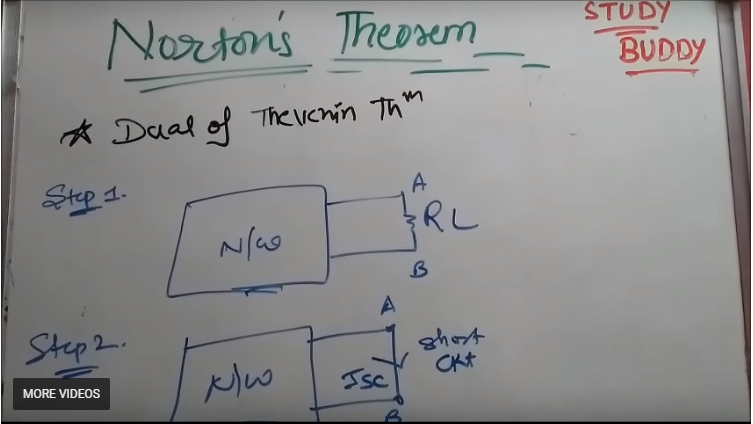 Norton's Theorem
STUDY
BUDDY
★ Dual of Thevenin Thm
Step 1.
N/W
A
RL
B
Step 2.
N/W
A
Isc
short
ckt
B
MORE VIDEOS